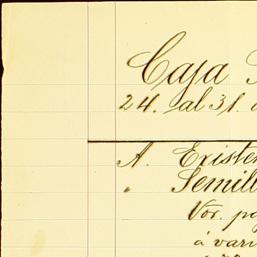 Caja
24. al 31.
A. Existen
" Semill
Vor. pa
á vari